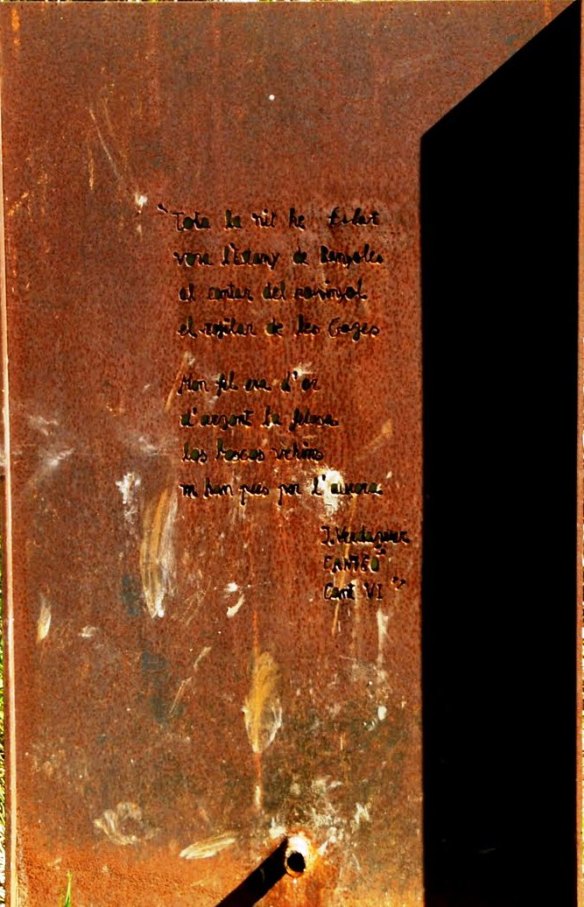 "Tota la nit he filat
vora l'Estany de Banyoles
al cantar del rossinyol
el refilar de les Goges
Mon fil era d'or
d'argent la filosa
los boscos vehins
m han pres por l'aurora
J. Verdaguer
CANIGÓ
Cant VI"